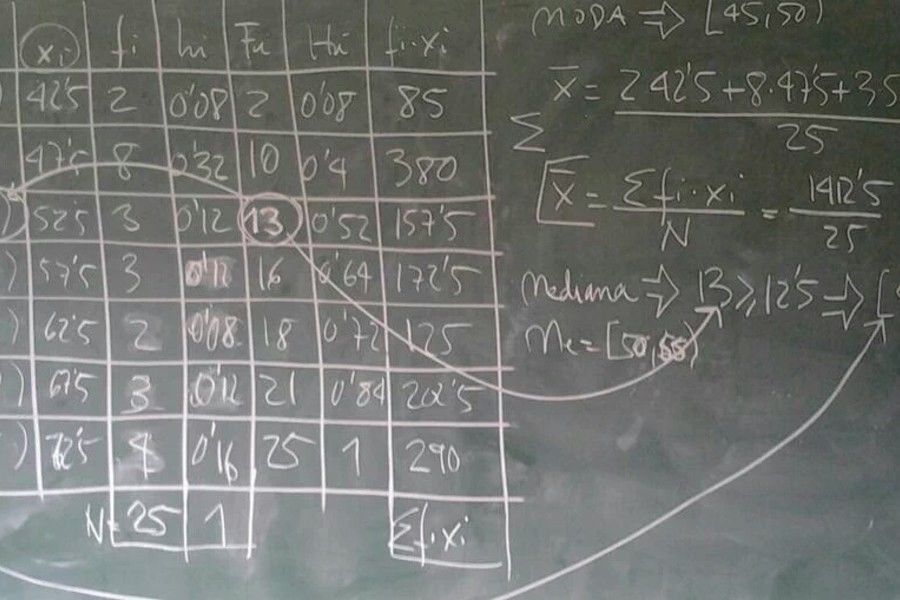 xi fi hi Fi Hi fi·xi
42'5 2 0'08 2 0'08 85
47'5 8 0'32 10 0'4 380
) 52'5 3 0'12 13 0'52 157'5
) 57'5 3 0'12 16 0'64 172'5
) 62'5 2 0'08 18 0'72 125
) 67'5 3 0'12 21 0'84 202'5
) 72'5 4 0'16 25 1 290
N= 25 1 Σfi·xi
MODA ⇒ [45,50)
x̄ = 2 42'5+8·47'5+3 5
25
Σ
x̄ = Σfi·xi / N = 1412'5 / 25
Mediana ⇒ 13 ≥ 12'5 ⇒ [
Me = [50,55)